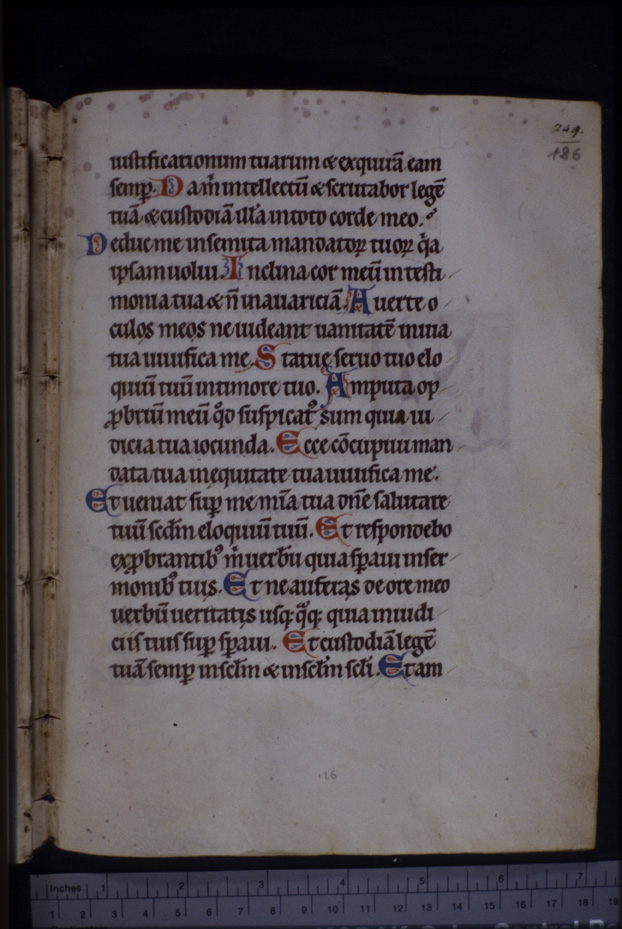 249.
186
iustificationum tuarum & exquirā eam
semꝑ. Da m̄ intellectū & scrutabor legē
tuā & custodiā illā in toto corde meo.
Deduc me in semita mandatoꝝ tuoꝝ q̄a
ipsam uolui. Inclina cor meū in testi
monia tua & n̄ in auariciā. Auerte o
culos meos ne uideant uanitatē in uia
tua uiuifica me. Statue seruo tuo elo
quiū tuū in timore tuo. Amputa op
ꝓbriū meū qd̓ suspicatꝰ sum quia iu
dicia tua iocunda. Ecce cōcupiui man
data tua in equitate tua uiuifica me.
Et ueniat suꝑ me mīa tua dn̄e salutare
tuū scd̄m eloquiū tuū. Et respondebo
exꝓbrantibꝰ m̄ uerbū quia sꝑaui in ser
monibꝰ tuis. Et ne auferas de ore meo
uerbū ueritatis usqꝫ q̄qꝫ quia in iudi
ciis tuis suꝑ sꝑaui. Et custodiā legē
tuā semꝑ in sc̄lm & in sc̄lm sc̄li. Et am
126
Inches 1 2 3 4 5 6 7
1 2 3 4 5 6 7 8 9 10 11 12 13 14 15 16 17 18 19